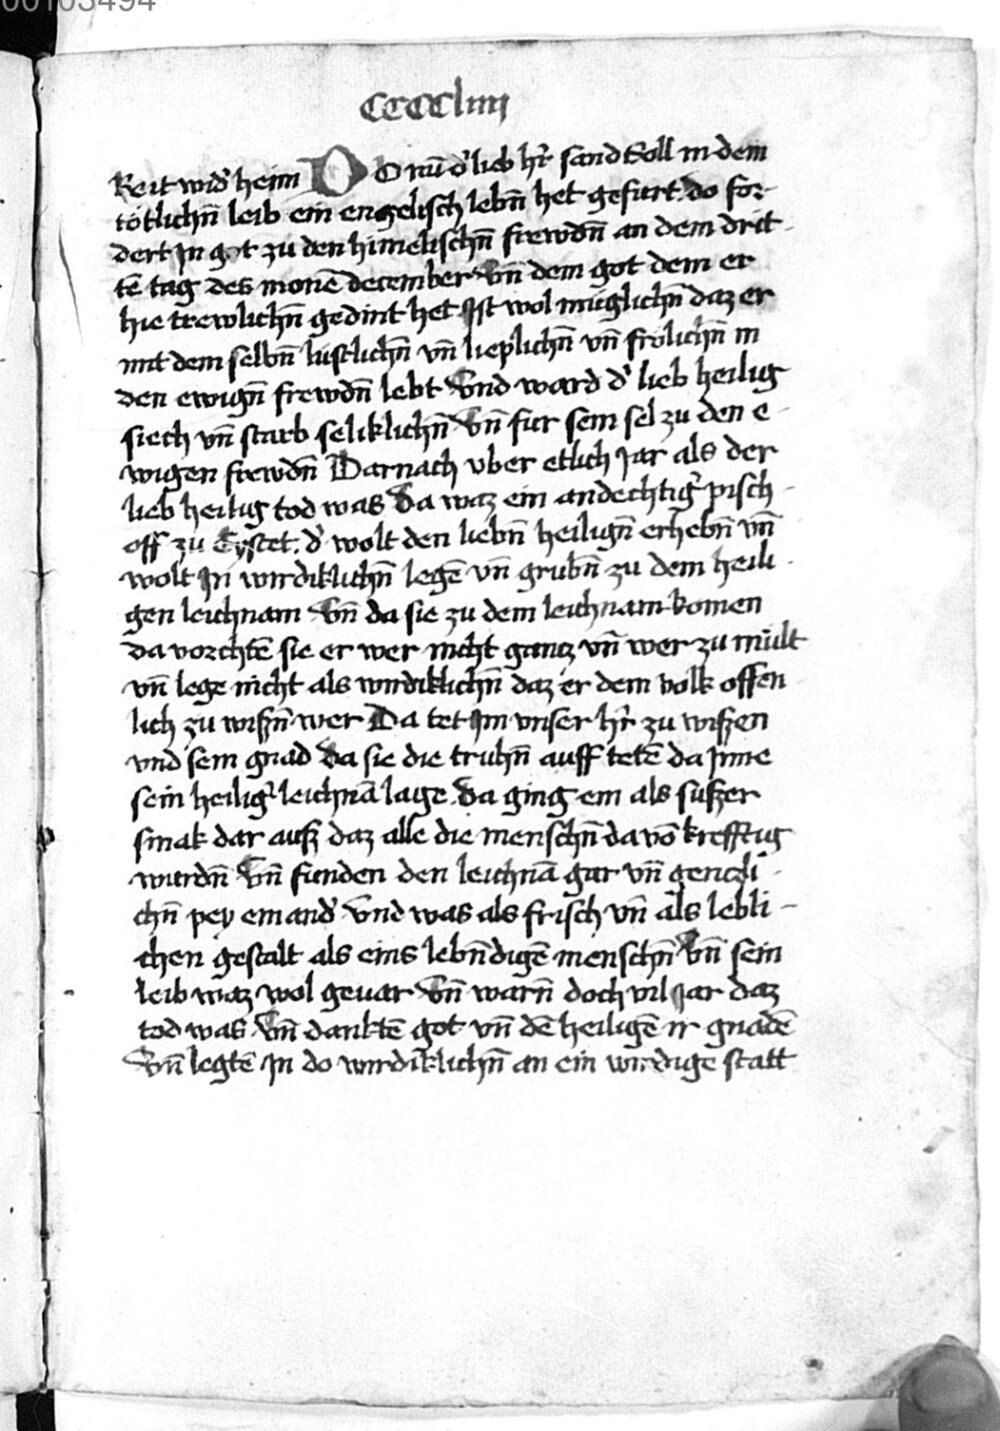 00103494
CCCCliiij
Reit wid᷑ heim DO nu᷑ d᷑ lieb hr᷑ sand Soll in dem
tötlichn̄ leib ein engelisch lebn̄ het gefurt. do for-
dert In got zu den himelischn̄ frewdn̄ an dem drit-
tē tag des monē december vn̄ dem got dem er
hie trewlichn̄ gedint het Ist wol müglichn̄ daz er
mit dem selbn̄ lustlichn̄ vn̄ lieplichn̄ vn̄ frölichn̄ in
den ewign̄ frewdn̄ lebt Vnd ward d᷑ lieb heilig
siech vn̄ starb seliklichn̄ Vn̄ fur sein sel zu den e-
wigen frewdn̄ Darnach vber etlich Jar als der
lieb heilig tod was Da waz ein andechtig᷑ pisch-
off zu Eystet. d᷑ wolt den liebn̄ heilign̄ erhebn̄ vn̄
wolt In wirdiklichn̄ legē vn̄ grubn̄ zu dem heili-
gen leichnam Vn̄ da sie zu dem leichnam komen
da vorchtē sie er wer nicht gantz vn̄ wer zu mült
vn̄ lege nicht als wirdiklichn̄ daz er dem volk offen-
lich zu wißn̄ wer Da tet Im vnser hr᷑ zu wißen
vnd sein gnad Da sie die truhn̄ auff tetē da Inne
sein heilig᷑ leichnā lage. Da ging ein als sußer
smak dar auß daz alle die menschn̄ da vō krefftig
wurdn̄ Vn̄ funden den leichnā gar vn̄ genczli-
chn̄ pey einand᷑ Vnd was als frisch vn̄ als lebli-
chen gestalt als eins lebn̄digē menschn̄ Vn̄ sein
leib waz wol gevar Vn̄ warn̄ doch vil Jar daz
tod was Vn̄ danktē got vn̄ dē heiligē ir gnadē
Vn̄ legtē In do wirdiklichn̄ an ein wirdige statt